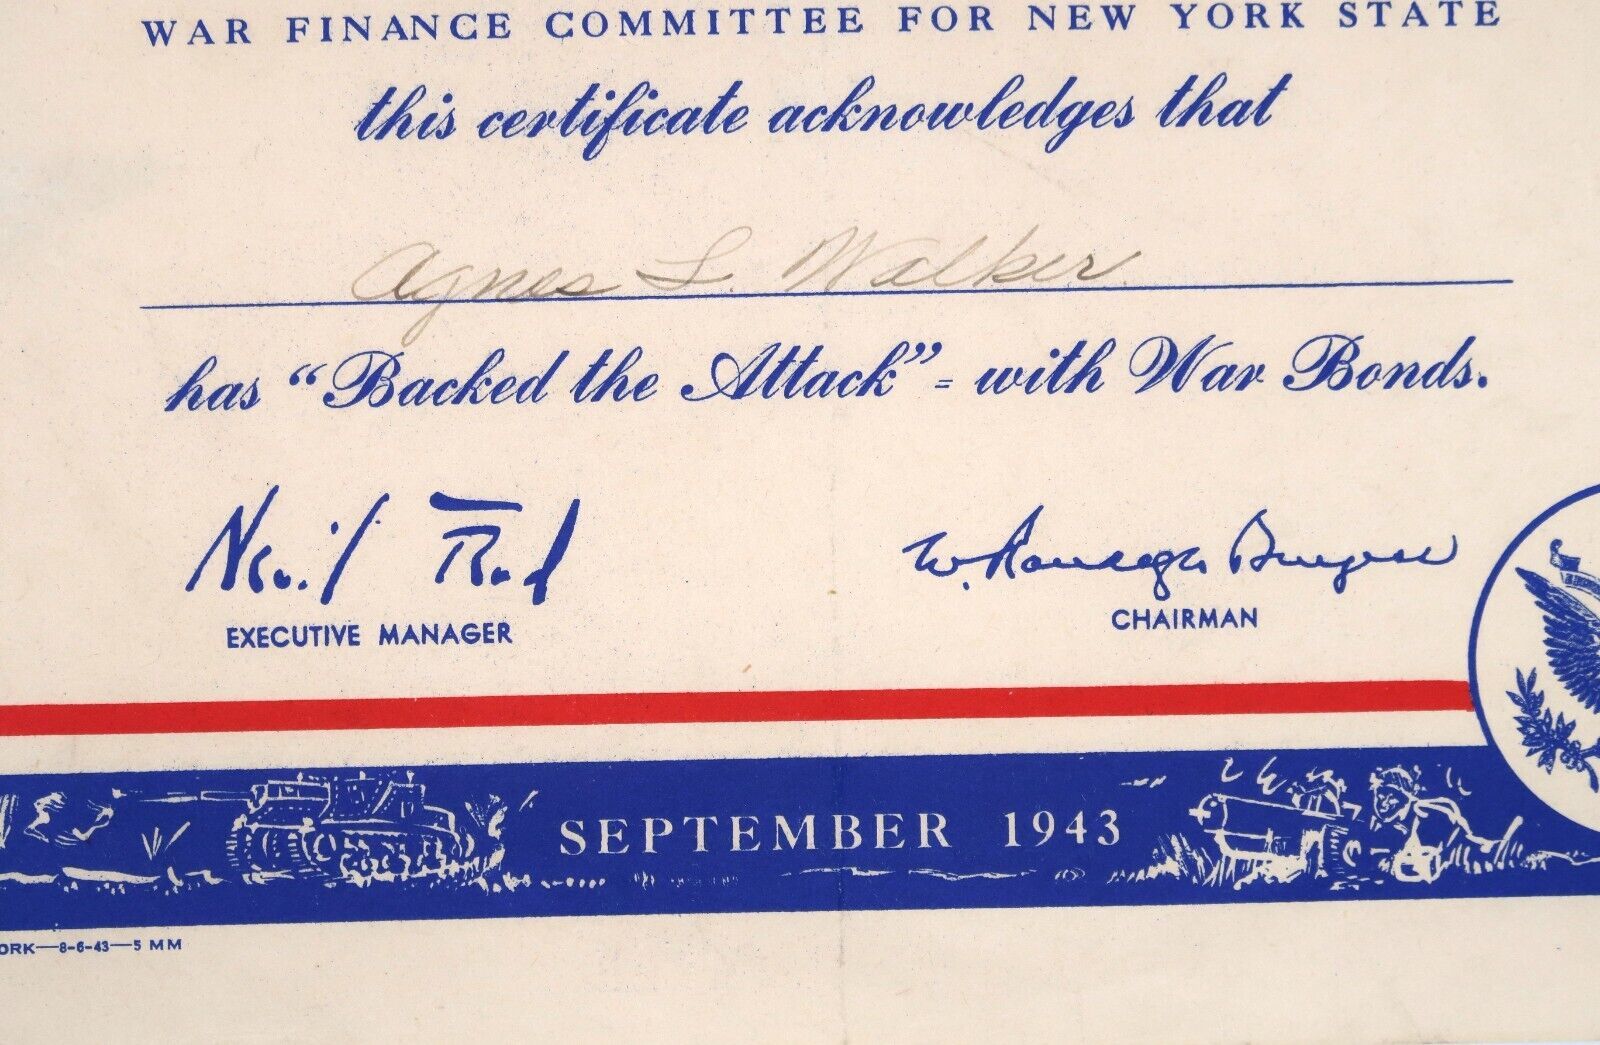 WAR FINANCE COMMITTEE FOR NEW YORK STATE
this certificate acknowledges that
Agnes L. Walker
has “Backed the Attack” - with War Bonds.
W. Burgess
EXECUTIVE MANAGER
CHAIRMAN
SEPTEMBER 1943
ORK—8-6-43—5 MM